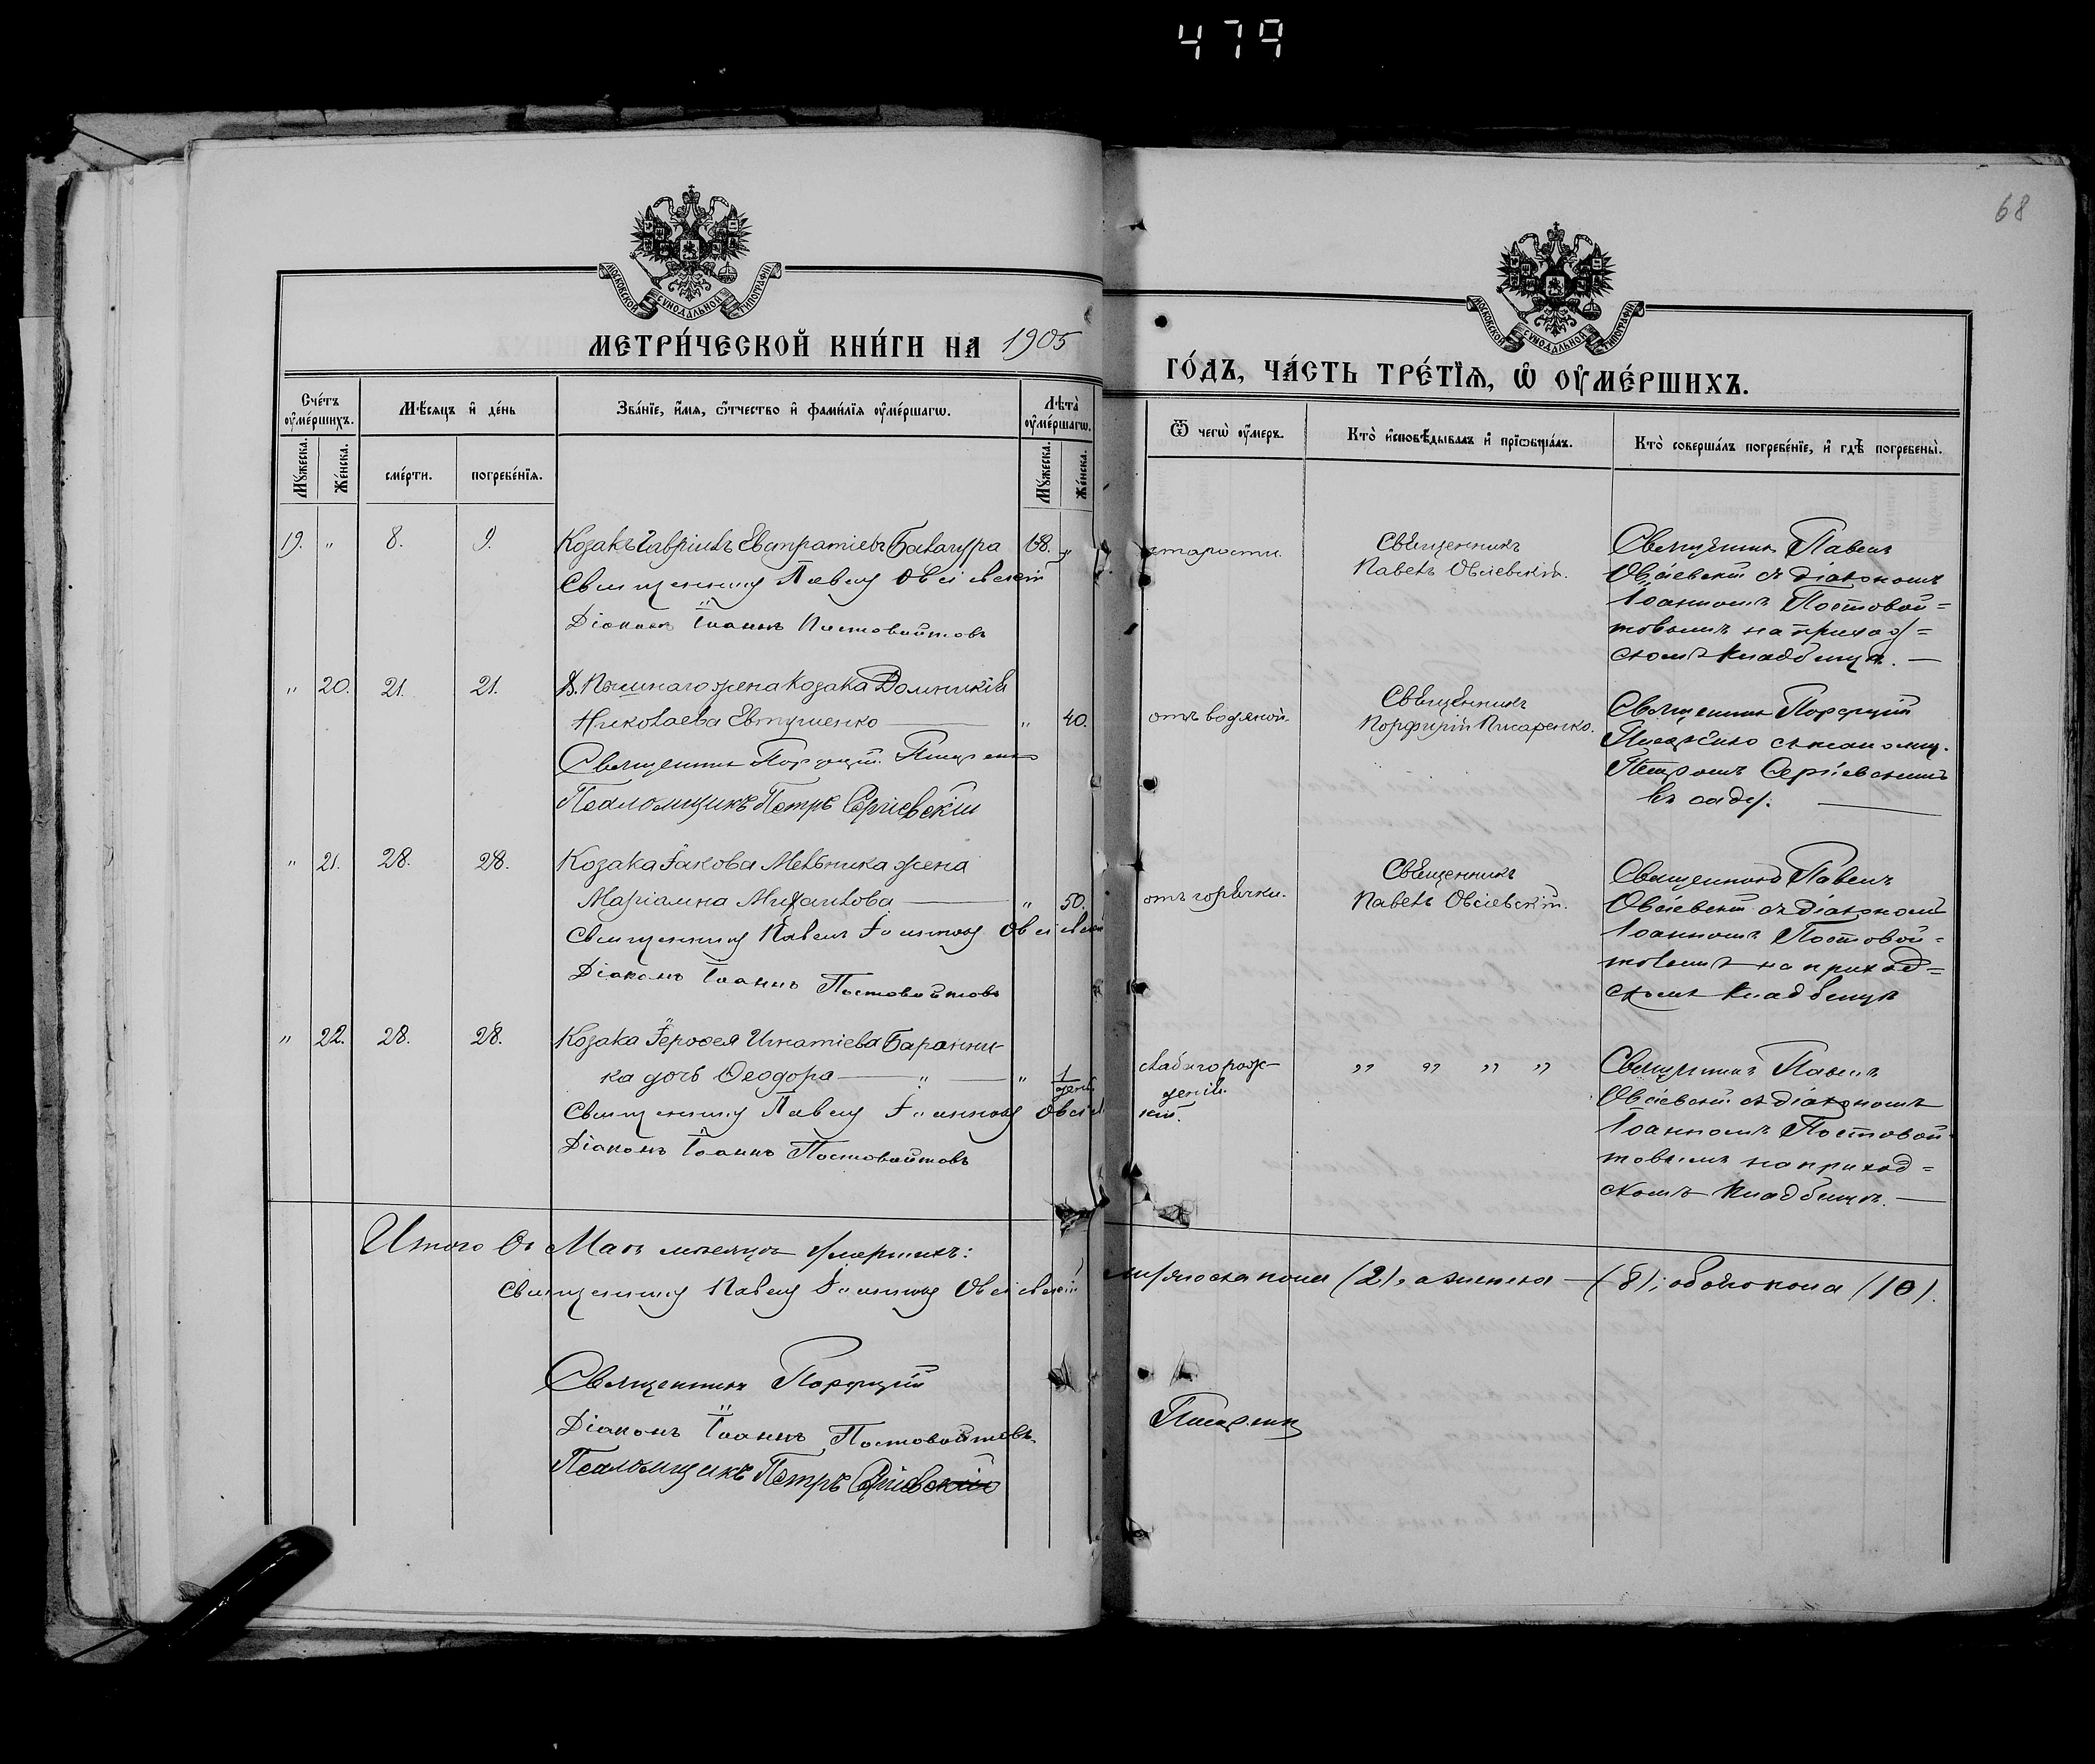 479
68
МОСКОВСКОЙ СѴНОДАЛЬНОЙ ТИПОГРАФІИ
МОСКОВСКОЙ СѴНОДАЛЬНОЙ ТИПОГРАФІИ
МЕТРИ́ЧЕСКОЙ КНИ́ГИ НА 1905
ГО́ДЪ, ЧА́СТЬ ТРЕ́ТІѦ, Ѽ ОУ҆МЕ́РШИХЪ.
Сче́тъ оу҆ме́ршихъ.
Мꙋ́жеска.
Же́нска.
Мѣ́сяцъ и҆ де́нь
сме́рти.
погребе́нїѧ.
Зва́нїе, и҆́мѧ, ѻ҆́тчество и҆ фами́лїѧ оу҆ме́ршагѡ.
Лѣ́та оу҆ме́ршагѡ.
Мꙋ́жеска.
Же́нска.
Ѿ чегѡ̀ оу҆́меръ.
Кто̀ и҆сповѣ́дывалъ и҆ прїѡбща́лъ.
Кто̀ соверша́лъ погребе́нїе, и҆ гдѣ̀ погребены̀.
19. " 8. 9. Козакъ Гавріилъ Евстратіевъ Бакангура 68. "
Священникъ Павелъ Овсіевскій
Діаконъ Іоаннъ Постовойтовъ
старости.
Священникъ
Павелъ Овсіевскій.
Священникъ Павелъ
Овсіевскій съ діакономъ
Іоанномъ Постовой=
товымъ на приход=
скомъ кладбищѣ. —
" 20. 21. 21. жена Козака Домникія
Николаева Евтушенко — " 40.
Священникъ Порфирій Писаренко
Псаломщикъ Петръ Сергіевскій
отъ водяной.
Священникъ
Порфирій Писаренко.
Священникъ Порфирій
Писаренко съ псаломщ.
Петромъ Сергіевскимъ
въ саду. —
" 21. 28. 28. Козака Іакова Мельника жена
Маріамна Михаилова — " 50.
Священникъ Павелъ Іоанновъ Овсіевскій
Діаконъ Іоаннъ Постовойтовъ
отъ горячки.
Священникъ
Павелъ Овсіевскій.
Священникъ Павелъ
Овсіевскій съ діакономъ
Іоанномъ Постовой=
товымъ на приход=
скомъ кладбищѣ
" 22. 28. 28. Козака Іерофея Игнатіева Баранни-
ка дочь Ѳеодора — " — " 1 день
Священникъ Павелъ Іоанновъ Овсіев
кій.
Діаконъ Іоаннъ Постовойтовъ
слабаго рож-
денія.
" " " "
Священникъ Павелъ
Овсіевскій съ діакономъ
Іоанномъ Постовой
товымъ на приход=
скомъ кладбищѣ. —
Итого въ Маѣ мѣсяцѣ умершихъ:
мужеска пола (2), а женска — (8); обоего пола (10).
Священникъ Павелъ Іоанновъ Овсіевскій
Священникъ Порфирій
Писаренко
Діаконъ Іоаннъ Постовойтовъ.
Псаломщикъ Петръ Сергіевскій